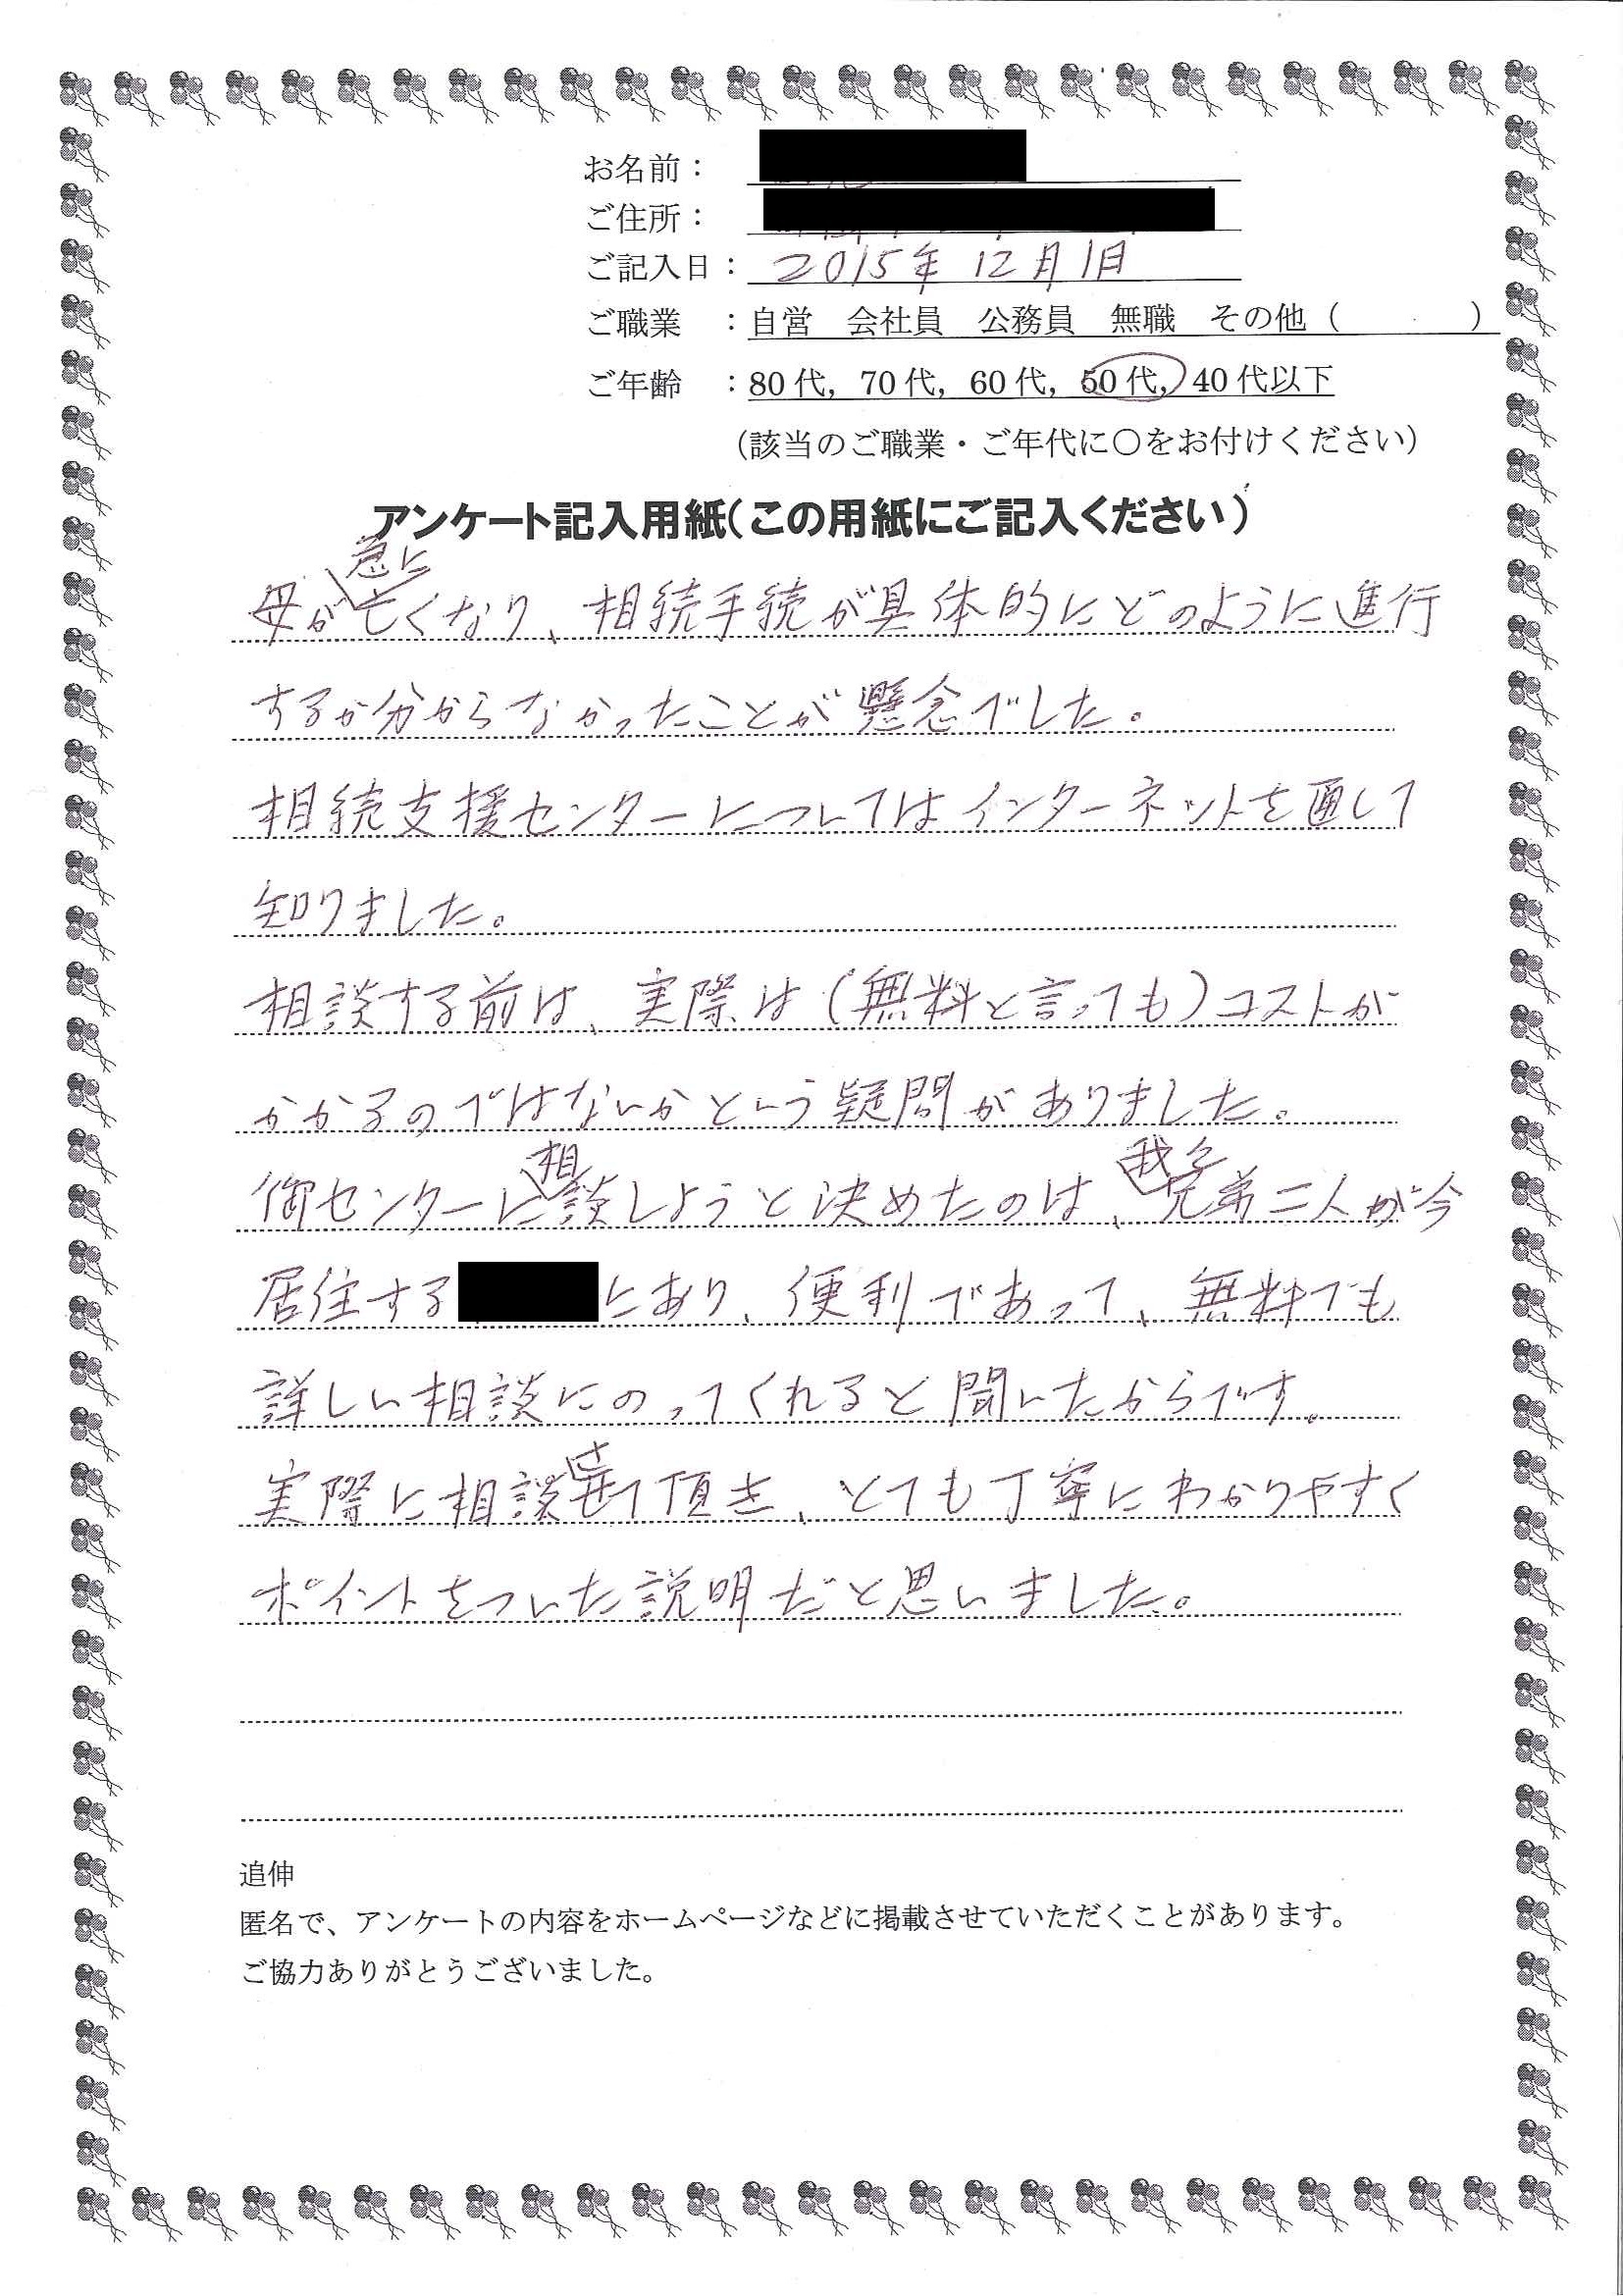 お名前：
ご住所：
ご記入日：2015年12月1日
ご職業　：自営　会社員　公務員　無職　その他（　　　　）
ご年齢　：80代，70代，60代，50代，40代以下
（該当のご職業・ご年代に〇をお付けください）
アンケート記入用紙（この用紙にご記入ください）
母が急に亡くなり、相続手続が具体的にどのように進行
するか分からなかったことが懸念でした。
相続支援センターについてはインターネットを通して
知りました。
相談する前は、実際は（無料と言っても）コストが
かかるのではないかという疑問がありました。
御センターに相談しようと決めたのは、我々兄弟二人が今
居住する にあり、便利であって、無料でも
詳しい相談にのってくれると聞いたからです。
実際に相談させて頂き、とても丁寧にわかりやすく
ポイントをついた説明だと思いました。
追伸
匿名で、アンケートの内容をホームページなどに掲載させていただくことがあります。
ご協力ありがとうございました。